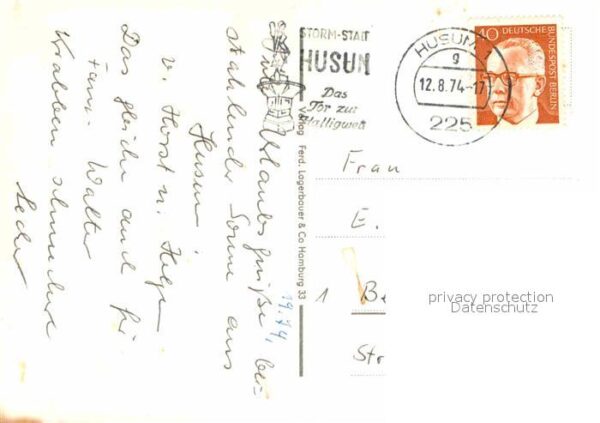 Gute Urlaubsgrüße, bei
strahlender Sonne aus
Husum!
v. Horst u. Helga
Das gleiche auch für
Fam. Walter
Krabben schmecken
lecker
1974
Verlag Ferd. Lagerbauer & Co Hamburg 33
STORM-STADT
HUSUM
Das
Tor zur
Halligwelt
HUSUM 1
g
12.8.74-17
225
40
DEUTSCHE
BUNDESPOST BERLIN
Frau
E.
1 Be
Str
privacy protection
Datenschutz